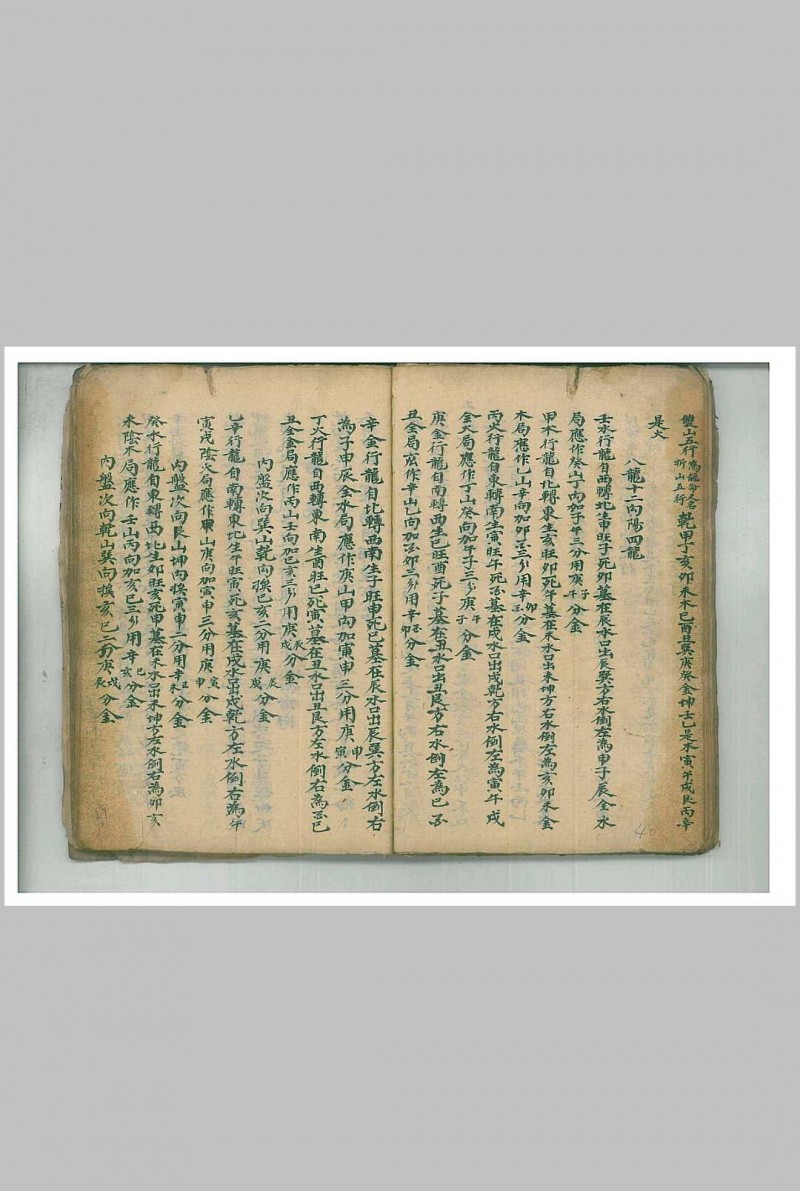 雙山五行 為龍命又名 析山五行 乾甲丁亥卯未木巳酉丑巽庚癸金坤壬乙是水寅午戌艮丙辛
是火
八龍十二內陽四龍
壬水行龍自西轉北生申旺子死卯墓在辰水口出辰巽方右水倒左為申子辰全水
局應作癸山丁向加子午三分用庚子 庚午分金
甲木行龍自北轉東生亥旺卯死午墓在未水口出未坤方右水倒左為亥卯未全
木局應作乙山辛向加卯酉三分用辛卯 酉分金
丙火行龍自東轉南生寅旺午死酉墓在戌水口出戌乾方右水倒左為寅午戌
全火局應作丁山癸向加午子三分庚午 子分金
庚金行龍自南轉西生巳旺酉死子墓在丑水口出丑艮方右水倒左為巳酉
丑全局應作辛山乙向加酉卯三分用辛酉 卯分金
辛金行龍自北轉西南生子旺申死巳墓在辰水口出辰巽方左水倒右
為子申辰全水局應作庚山甲向加寅申三分用庚申 寅分金
丁火行龍自西轉東南生酉旺巳死寅墓在丑水口出丑艮方左水倒右為酉巳
丑全金局應作丙山壬向加巳亥三分用庚辰 戌分金
內盤次向巽山乾向挨巳亥二分用庚辰 戌分金
乙辛行龍自南轉東北生午旺寅死亥墓在戌水口出戌乾方左水倒右為午
寅戌陰火局應作甲山庚向加寅申三分用庚寅 申分金
內盤次向艮山坤向挨寅申二分用辛丑 未分金
癸水行龍自東轉西北生卯旺亥死申墓在未水口出未坤方左水倒右為卯亥
未陰木局應作壬山丙向加亥巳三分用辛巳 亥分金
內盤次向乾山巽向挨亥巳二分庚戌 辰分金